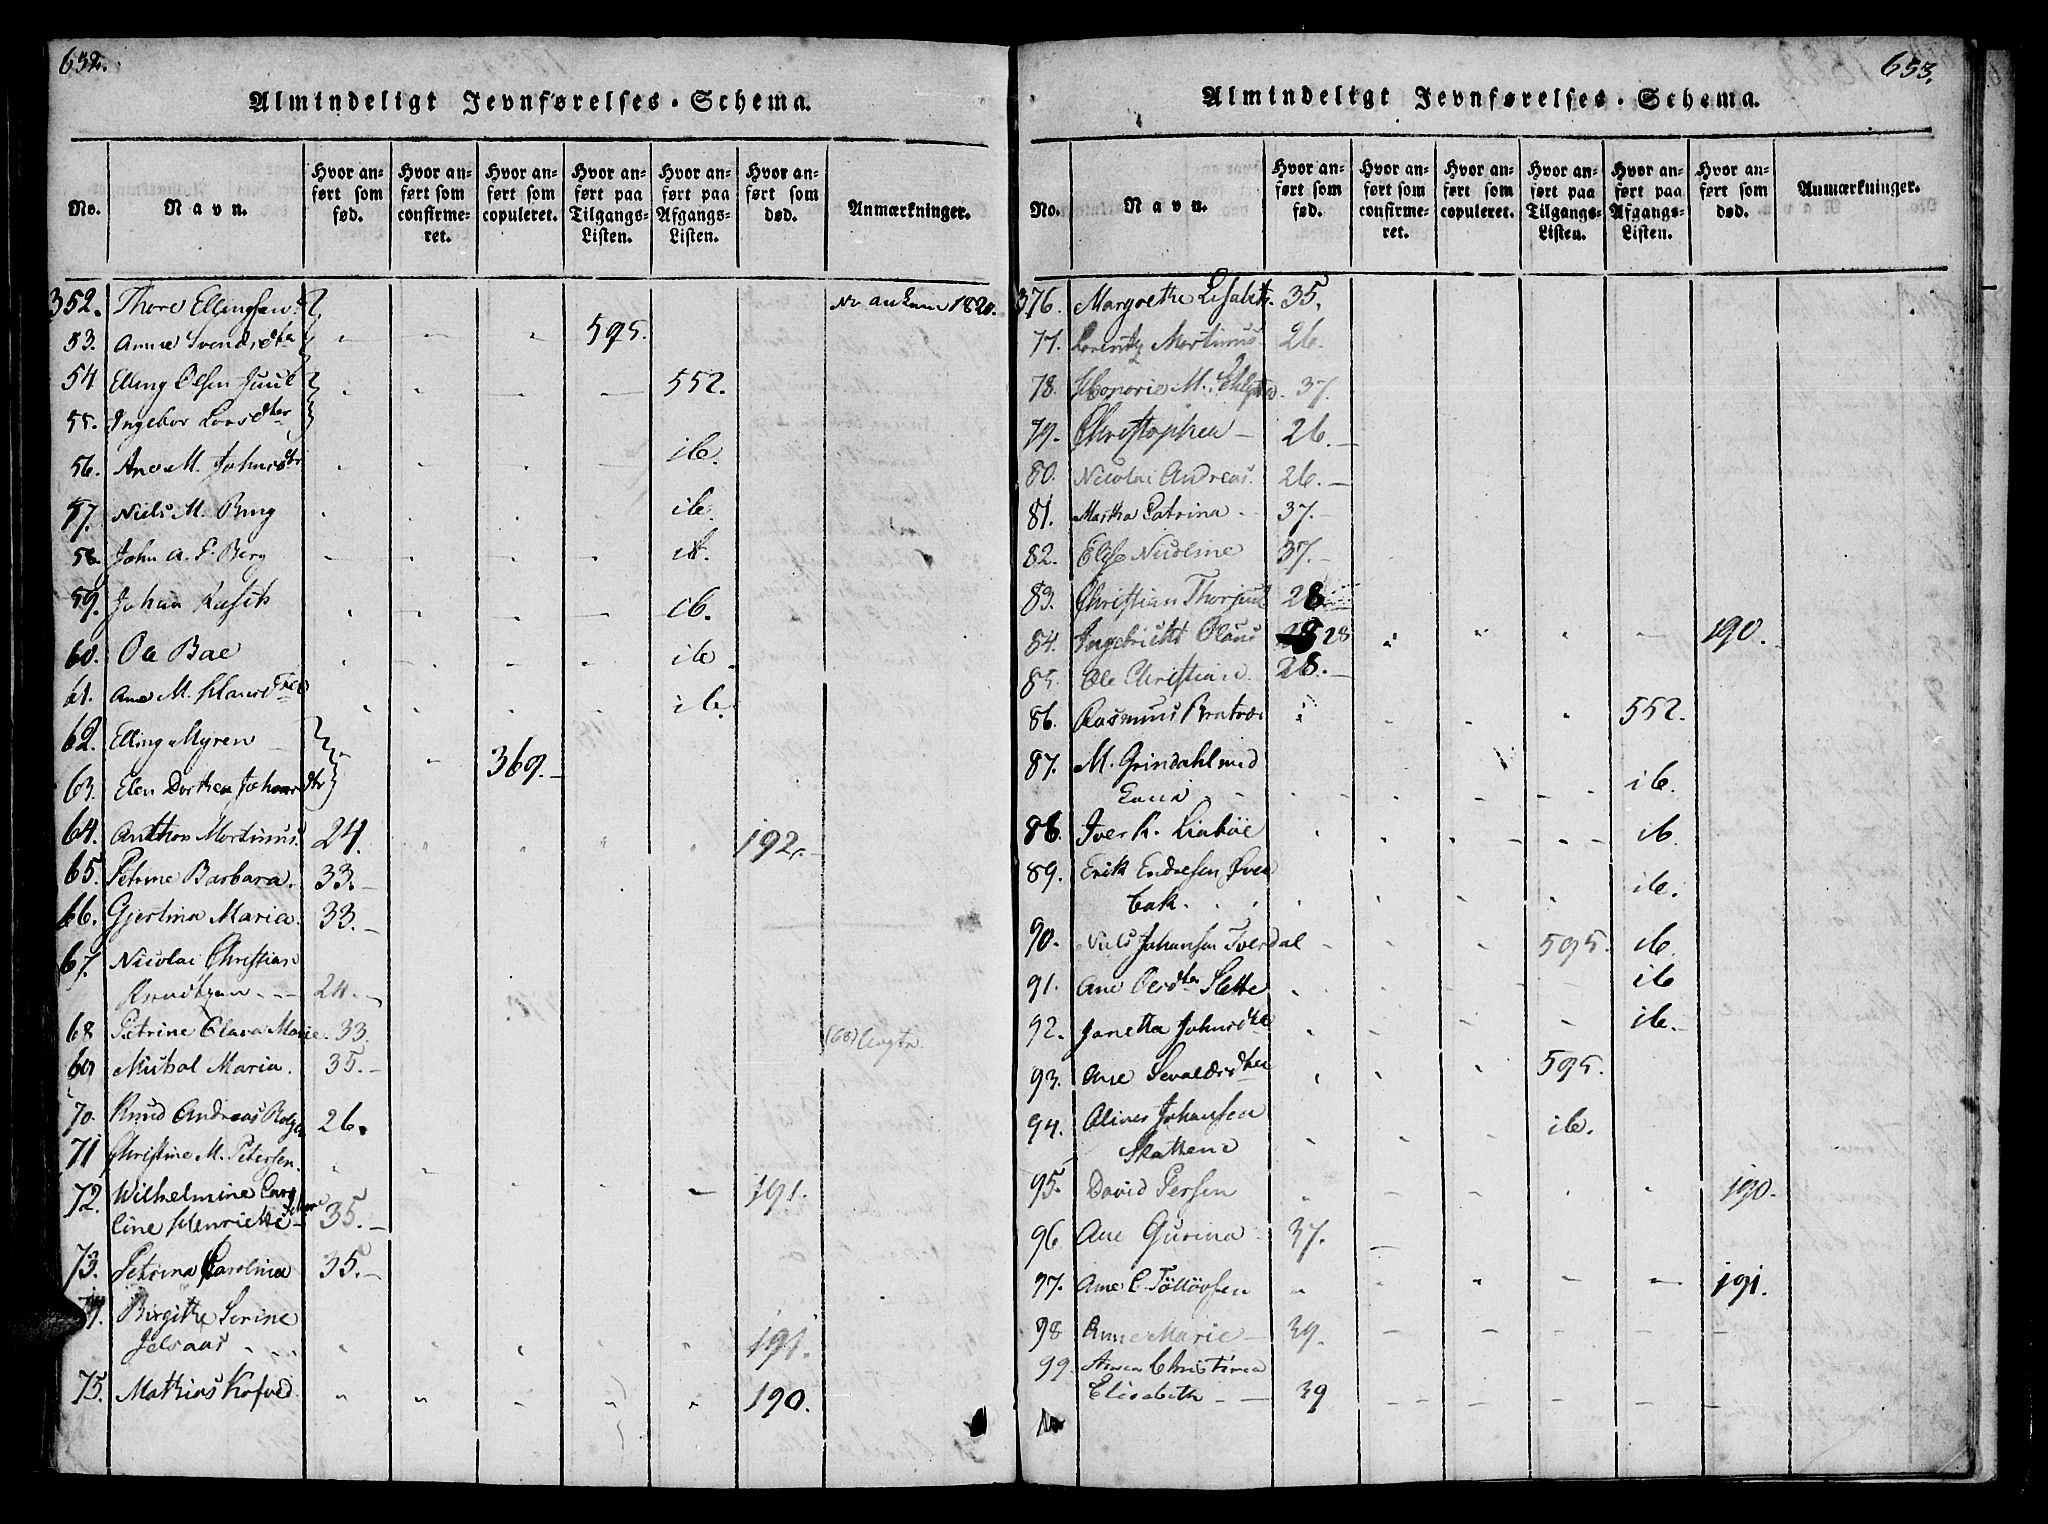 652.
Almindeligt Jevnførelses-Schema.
No.
Navn.
Hvor an-
ført som
fød.
Hvor an-
ført som
confirme-
ret.
Hvor an-
ført som
copuleret.
Hvor an-
ført paa
Tilgangs-
Listen.
Hvor an-
ført paa
Afgangs-
Listen.
Hvor an-
ført som
død.
Anmærkninger.
352. Thore Ellingsen
53. Anne Svendsdtr 595.
54 Elling Olsen Juul 552.
55. Ingebor Larsdter
56. Ane M. Johnsdtr ib.
57. Niels M. Bing ib.
58. John A. P. Berg ib.
59. Johan ib.
60. Ole Bae ib.
61. Ane M. ib.
62. Elling Myren
63. Elen Dorthea Johansdtr 369.
64. Anthon Mortinus. 24. 192.
65. Petrine Barbara. 33.
66. Gjertina Maria. 33.
67. Nicolai Christian
Knudtzon 24.
68 Petrine Olava Marie. 33. (68)
69 Michal Maria. 35.
70. Knud Andreas 26.
71 Christine M. Petersen. 191.
72. Wilhelmine Caro
line Henriette 35.
73. Petrina Carolina 35.
74. Birgithe Serine
Jelsaas 191.
75. Mathias Kofoed 190.
653.
Almindeligt Jevnførelses-Schema.
No.
Navn.
Hvor an-
ført som
fød.
Hvor an-
ført som
confirme-
ret.
Hvor an-
ført som
copuleret.
Hvor an-
ført paa
Tilgangs-
Listen.
Hvor an-
ført paa
Afgangs-
Listen.
Hvor an-
ført som
død.
Anmærkninger.
376. Margrethe 35.
77. Lorentz Martinus 26.
78. Honorie M. 37.
79. Christophea 26.
80. Nicolai Andreas. 26.
81. Martha Catrina 37.
82. Elise Nicoline 37.
83. Christian 28
84. Ingebricht Olaus 28 190.
85. Ole Christian. 28.
86. Rasmus 552.
87. M. Grindahl med
ib.
88. Iver K. Liabøe ib
89. Erik Endresen Øver
bak. ib.
90. Niels Johansen Tverdal 595. ib.
91. Ane Oersdter Slette ib
92. Janetta Johnsdtr ib.
93. Ane Sevaldsdter 595.
94. Oliver Johansen
ib.
95. David Persen 190.
96 Ane Gurina 37.
97. Ane C. Tølløvsen 191.
98 Anne Marie 39.
99. Anna Christina
Elisabeth 39